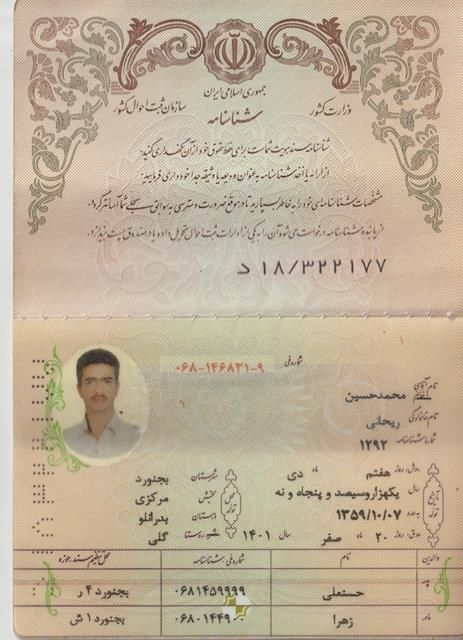 جمهوری اسلامی ایران
وزارت کشور
سازمان ثبت احوال کشور
شناسنامه
شناسنامه سند هویت شماست برای حفظ حقوق خود از آن نگهداری کنید:
از ارائه یا اخذ شناسنامه به عنوان ودیعه یا وثیقه جداً خودداری فرمایید:
مشخصات شناسنامه‌ای خود را به خاطر بسپارید تا در موقع ضرورت دسترسی به سوابق سجلی شما آسانتر گردد.
از یابنده شناسنامه درخواست می‌شود آن را به یکی از ادارات ثبت احوال تحویل داده یا در صندوق پست بیندازد.
۱۸/۳۲۲۱۷۷ د
شماره ملی ۰۶۸-۱۴۶۸۳۱-۹
نام آقای محمدحسین
نام خانوادگی ریحانی
شماره شناسنامه ۱۲۹۲
تاریخ تولد
روز هفتم ماه دی
سال یکهزاروسیصد و پنجاه و نه
۱۳۵۹/۱۰/۰۷
روز ۲۰ ماه صفر سال ۱۴۰۱
محل تولد
شهرستان بجنورد
بخش مرکزی
دهستان بدرانلو
شهر روستا گلی
والدین نام شماره ملی شناسنامه محل تنظیم سند حوزه
پدر حسنعلی ۰۶۸۱۴۵۹۹۹۹ بجنورد ۴ ر
مادر زهرا بجنورد ۱ ش